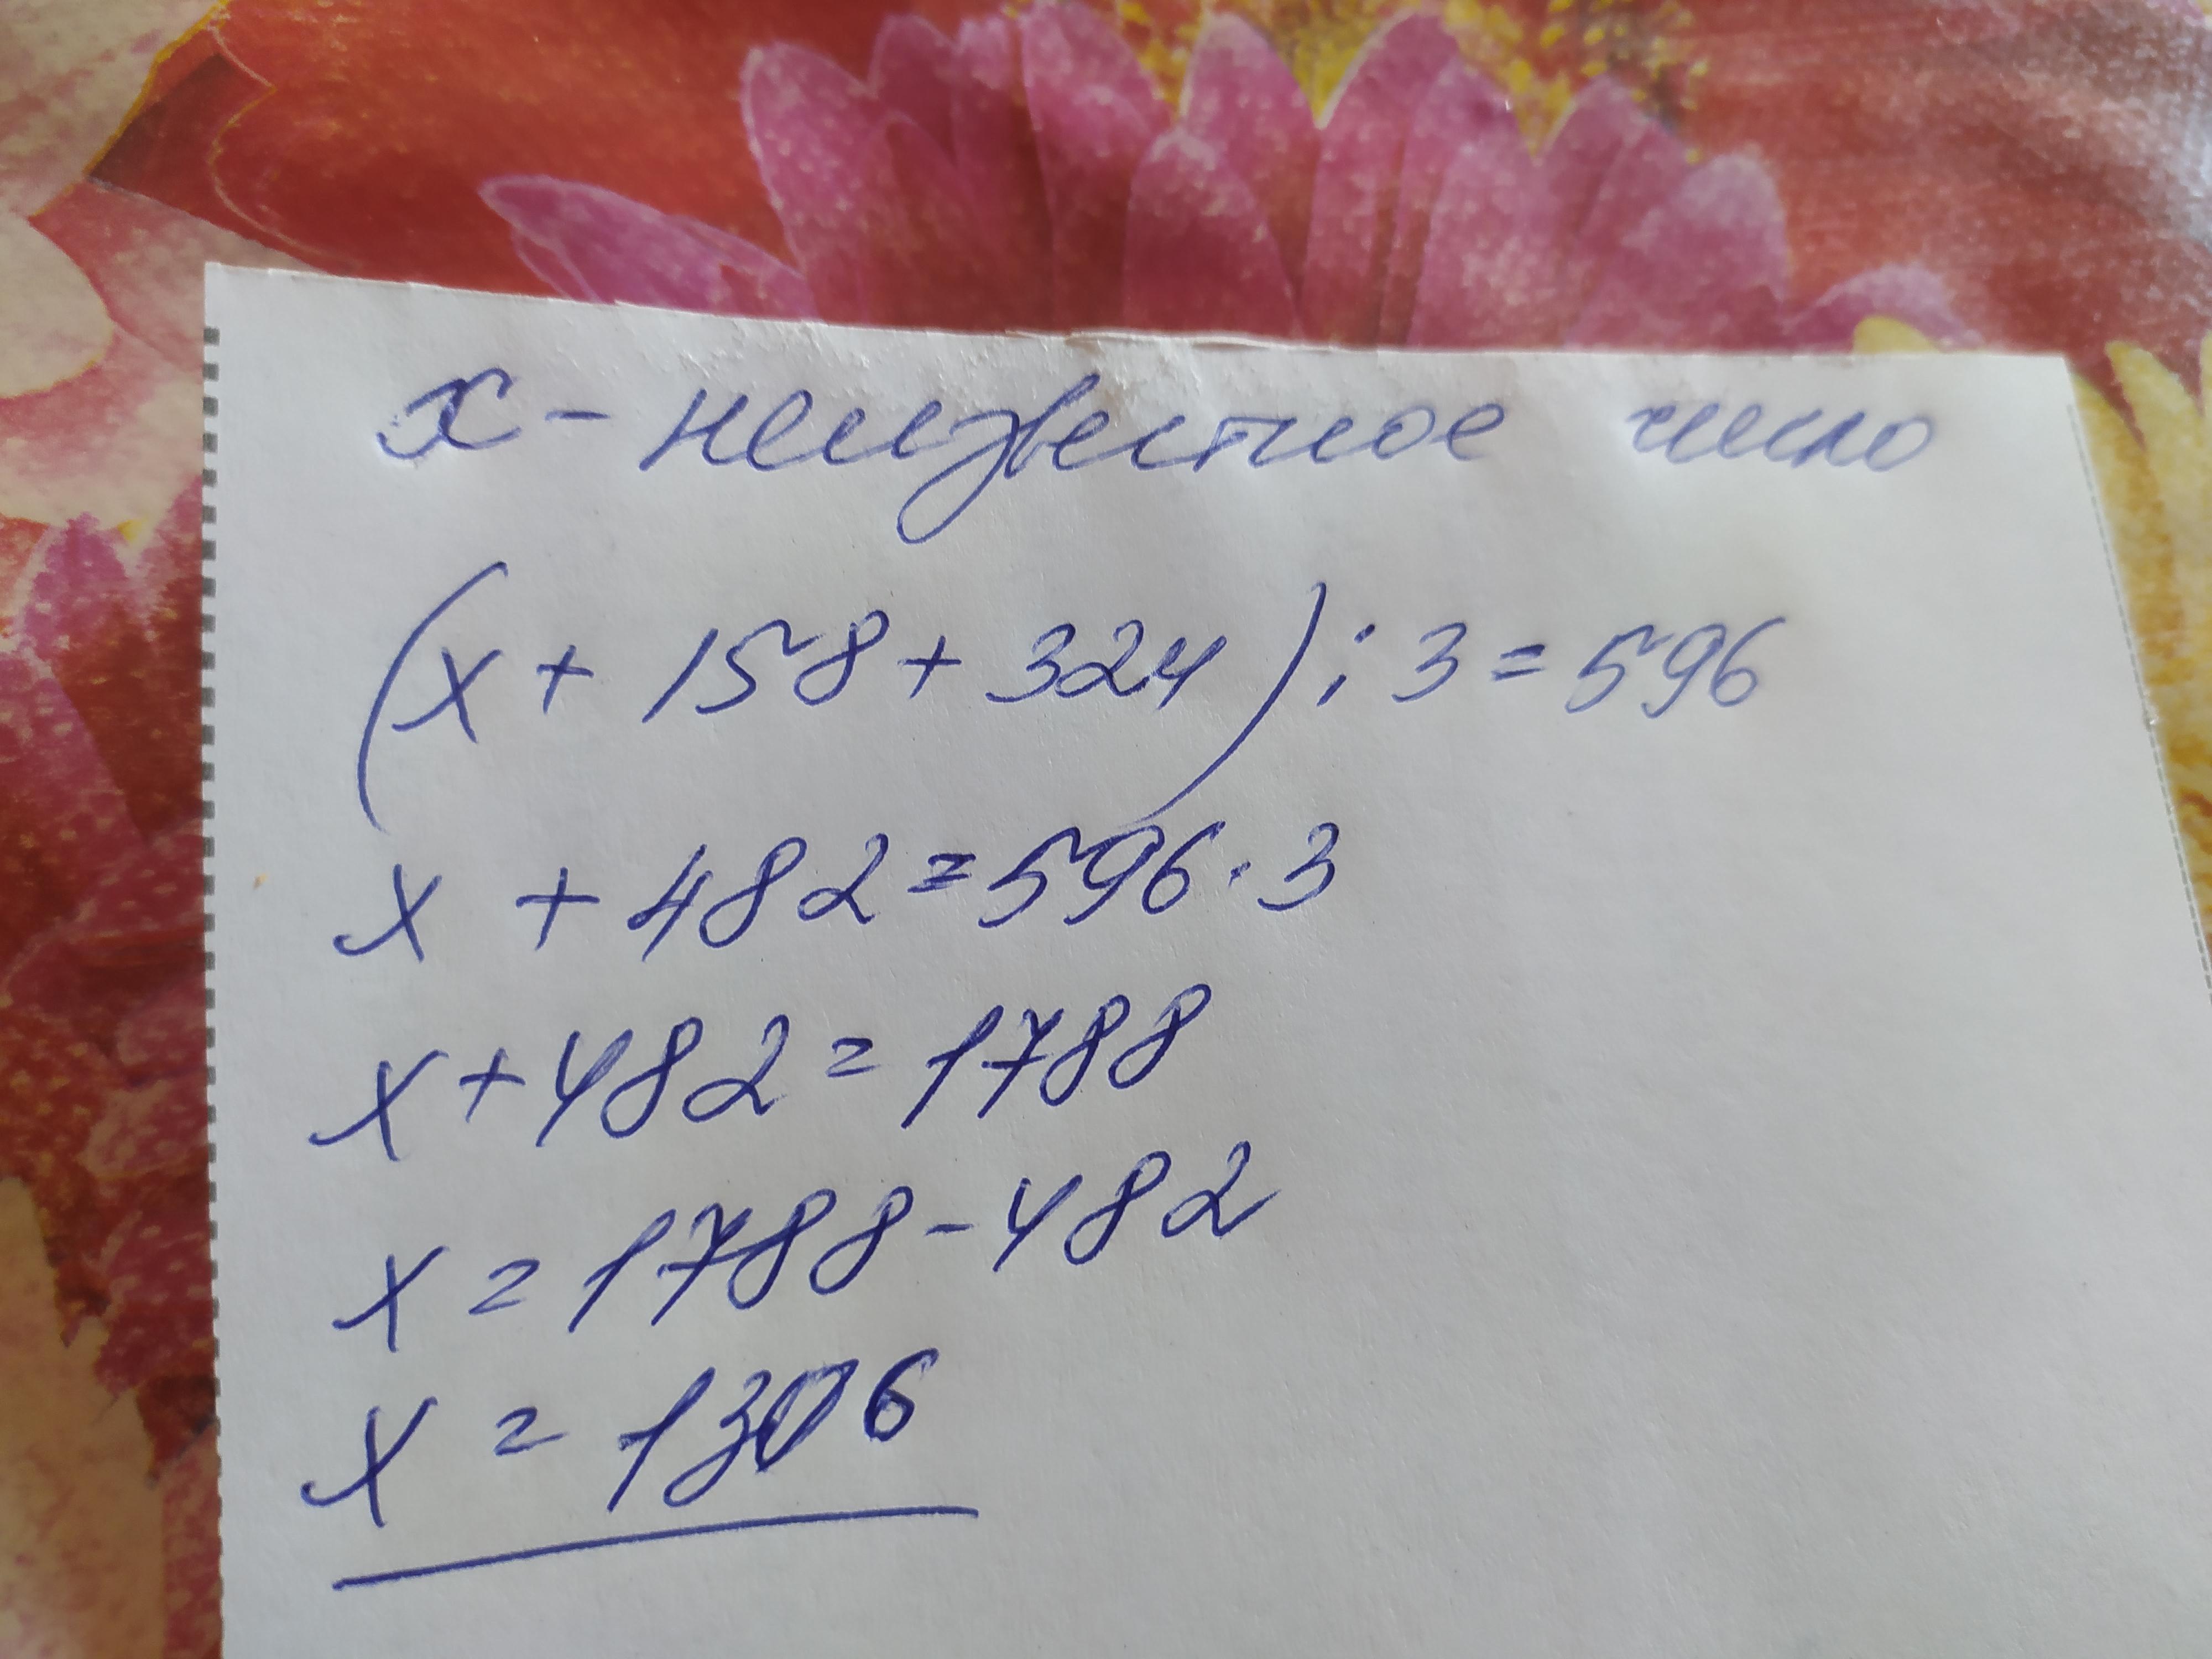 x - неизвестное число
(x + 158 + 324) : 3 = 596
x + 482 = 596 · 3
x + 482 = 1788
x = 1788 - 482
x = 1306